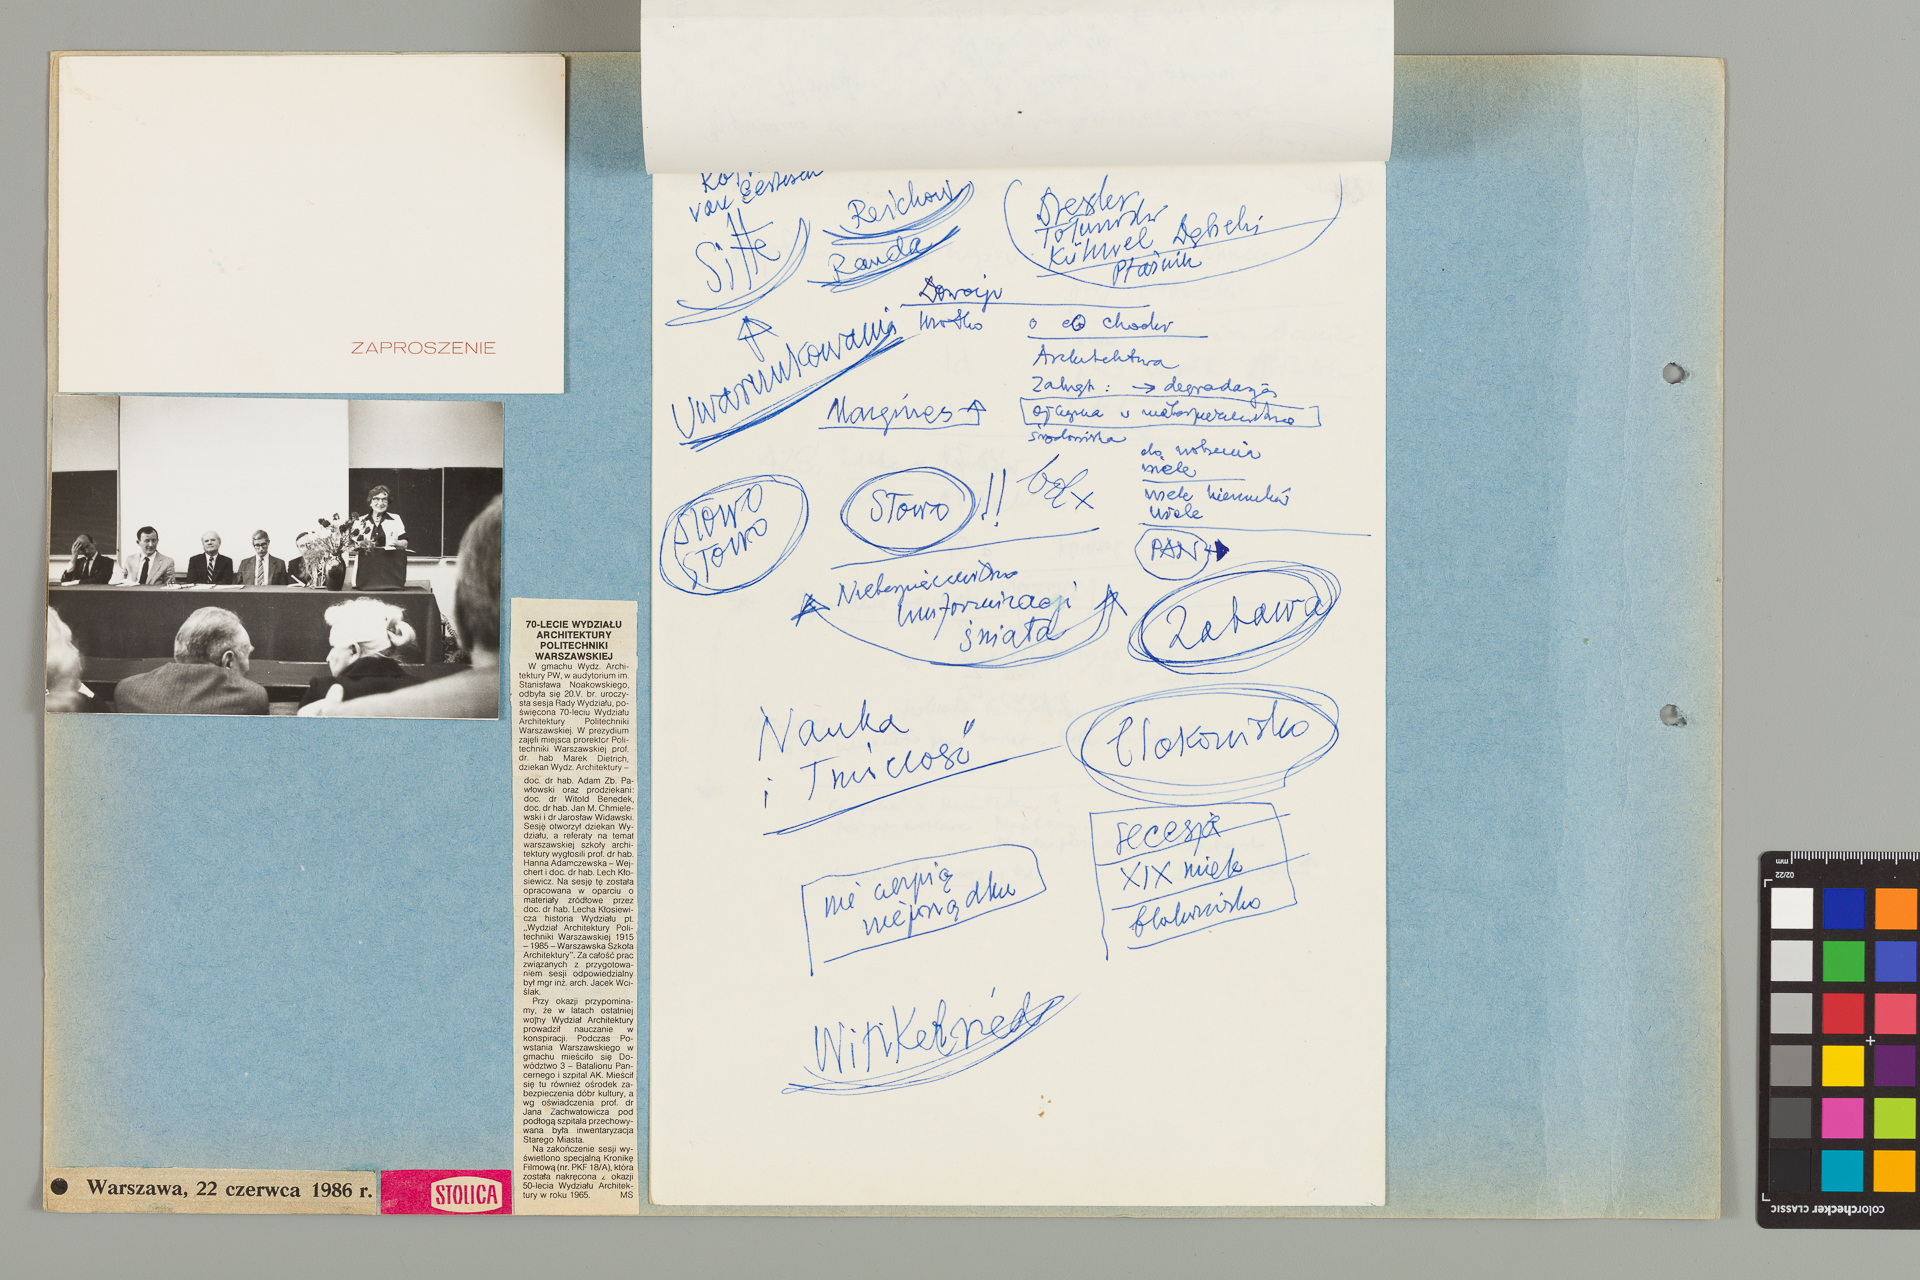 ZAPROSZENIE
70-LECIE WYDZIAŁU
ARCHITEKTURY
POLITECHNIKI
WARSZAWSKIEJ
W gmachu Wydz. Archi-
tektury PW, w audytorium im.
Stanisława Noakowskiego,
odbyła się 20.V. br. uroczy-
sta sesja Rady Wydziału, po-
święcona 70-leciu Wydziału
Architektury Politechniki
Warszawskiej. W prezydium
zajęli miejsca prorektor Poli-
techniki Warszawskiej prof.
dr. hab Marek Dietrich,
dziekan Wydz. Architektury –
doc. dr hab. Adam Zb. Pa-
włowski oraz prodziekani:
doc. dr Witold Benedek,
doc. dr hab. Jan M. Chmiele-
wski i dr Jarosław Widawski.
Sesję otworzył dziekan Wy-
działu, a referaty na temat
warszawskiej szkoły archi-
tektury wygłosili prof. dr hab.
Hanna Adamczewska – Wej-
chert i doc. dr hab. Lech Kło-
siewicz. Na sesję tę została
opracowana w oparciu o
materiały źródłowe przez
doc. dr hab. Lecha Kłosiewi-
cza historia Wydziału pt.
„Wydział Architektury Poli-
techniki Warszawskiej 1915
– 1985 – Warszawska Szkoła
Architektury”. Za całość prac
związanych z przygotowa-
niem sesji odpowiedzialny
był mgr inż. arch. Jacek Wci-
ślak.
Przy okazji przypomina-
my, że w latach ostatniej
wojny Wydział Architektury
prowadził nauczanie w
konspiracji. Podczas Po-
wstania Warszawskiego w
gmachu mieściło się Do-
wództwo 3 – Batalionu Pan-
cernego i szpital AK. Mieścił
się tu również ośrodek za-
bezpieczenia dóbr kultury, a
wg oświadczenia prof. dr
Jana Zachwatowicza pod
podłogą szpitala przechowy-
wana była inwentaryzacja
Starego Miasta.
Na zakończenie sesji wy-
świetlono specjalną Kronikę
Filmową (nr. PKF 18/A), która
została nakręcona z okazji
50-lecia Wydziału Architek-
tury w roku 1965. MS
Warszawa, 22 czerwca 1986 r.
STOLICA
Sitte
Reichow
Randa
Tołwiński
Ptaśnik
Uwarunkowania
o co chodzi
Architektura
→ degradacja
Margines
środowiska
wiele
wiele kierunków
wiele
Słowo
Słowo
Słowo !!
PAN
Niebezpieczeństwo
uniformizacji
świata
Zabawa
Nauka
i Twórczość
blokowisko
secesja
XIX wiek
blokowisko
nie cierpią
nieporządku
mm
02/22
colorchecker CLASSIC